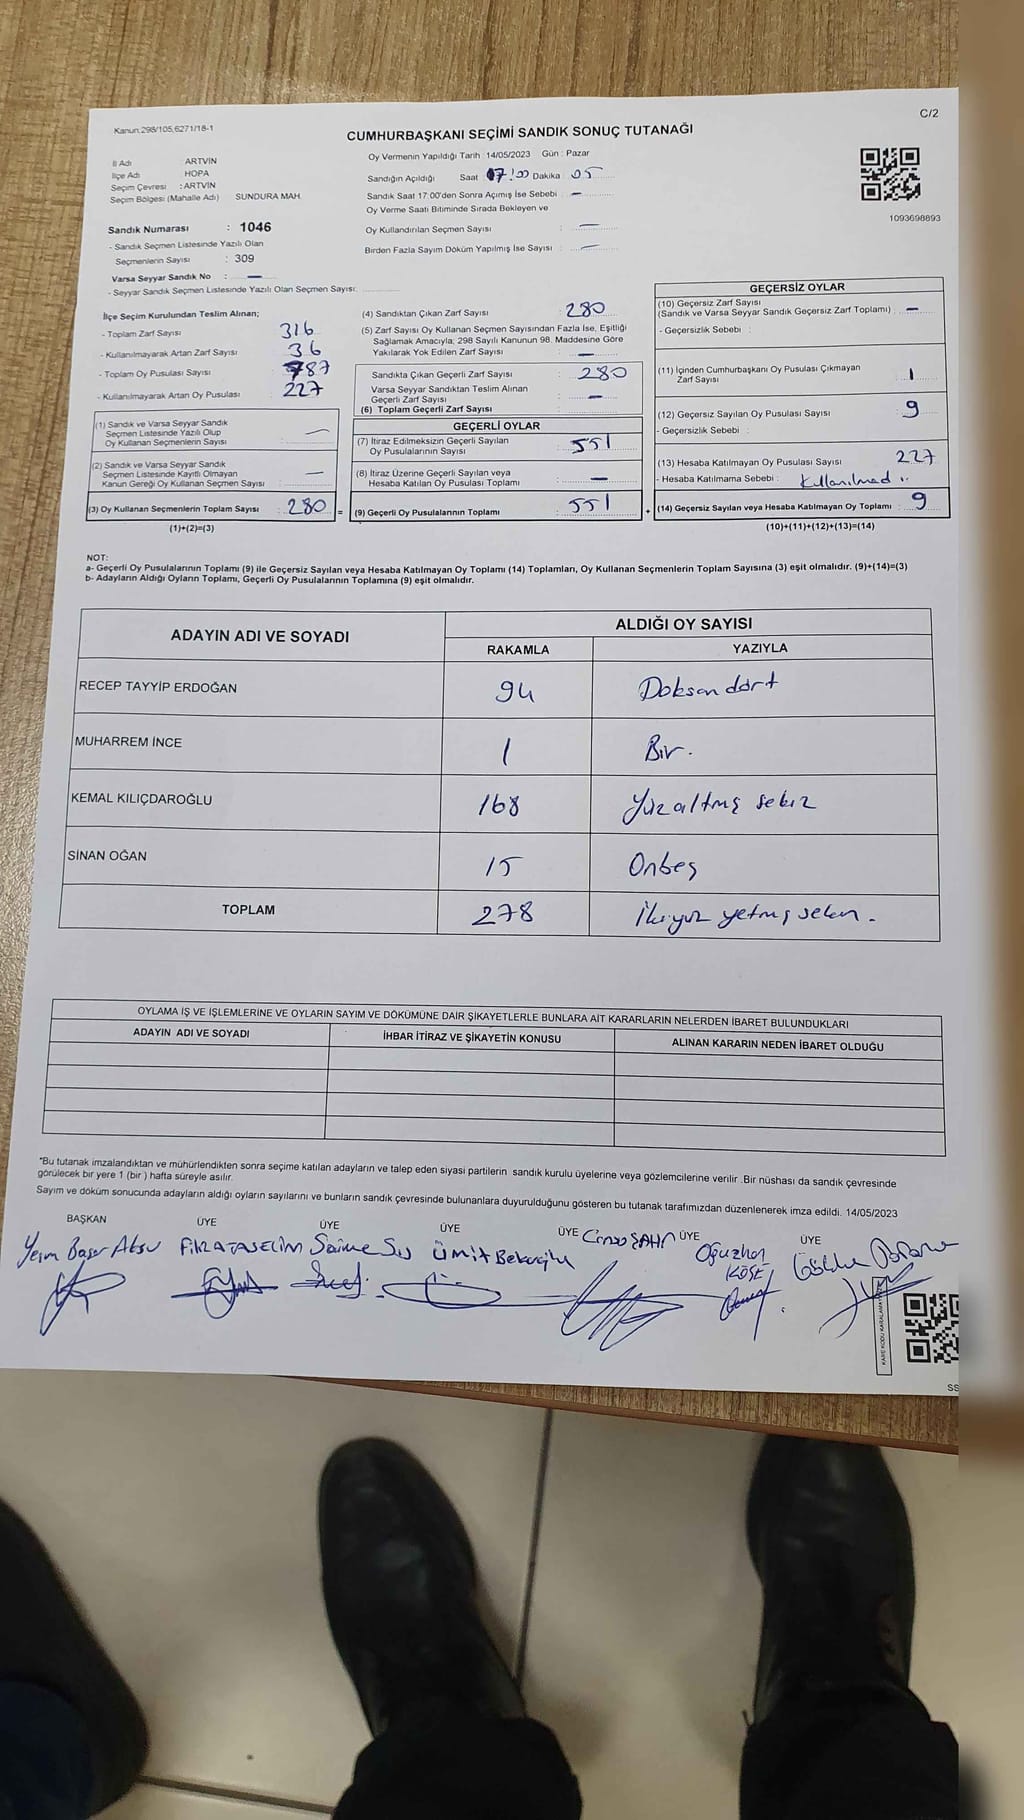 Kanun:298/105,6271/18-1
C/2
CUMHURBAŞKANI SEÇİMİ SANDIK SONUÇ TUTANAĞI
İl Adı ARTVİN
İlçe Adı HOPA
Seçim Çevresi : ARTVİN
Seçim Bölgesi (Mahalle Adı) SUNDURA MAH.
Sandık Numarası : 1046
- Sandık Seçmen Listesinde Yazılı Olan
Seçmenlerin Sayısı : 309
Varsa Seyyar Sandık No : —
- Seyyar Sandık Seçmen Listesinde Yazılı Olan Seçmen Sayısı:
Oy Vermenin Yapıldığı Tarih :14/05/2023 Gün : Pazar
Sandığın Açıldığı Saat 17:00 Dakika : 05
Sandık Saat 17:00'den Sonra Açımış İse Sebebi : —
Oy Verme Saati Bitiminde Sırada Bekleyen ve
Oy Kullandırılan Seçmen Sayısı : —
Birden Fazla Sayım Döküm Yapılmış İse Sayısı : —
1093698893
İlçe Seçim Kurulundan Teslim Alınan;
- Toplam Zarf Sayısı 316
- Kullanılmayarak Artan Zarf Sayısı 36
- Toplam Oy Pusulası Sayısı 787
- Kullanılmayarak Artan Oy Pusulası 227
(1) Sandık ve Varsa Seyyar Sandık
Seçmen Listesinde Yazılı Olup
Oy Kullanan Seçmenlerin Sayısı : —
(2) Sandık ve Varsa Seyyar Sandık
Seçmen Listesinde Kayıtlı Olmayan
Kanun Gereği Oy Kullanan Seçmen Sayısı : —
(3) Oy Kullanan Seçmenlerin Toplam Sayısı : 280 =
(1)+(2)=(3)
(4) Sandıktan Çıkan Zarf Sayısı : 280
(5) Zarf Sayısı Oy Kullanan Seçmen Sayısından Fazla İse, Eşitliği
Sağlamak Amacıyla; 298 Sayılı Kanunun 98. Maddesine Göre
Yakılarak Yok Edilen Zarf Sayısı : —
Sandıkta Çıkan Geçerli Zarf Sayısı : 280
Varsa Seyyar Sandıktan Teslim Alınan
Geçerli Zarf Sayısı : —
(6) Toplam Geçerli Zarf Sayısı :
GEÇERLİ OYLAR
(7) İtiraz Edilmeksizin Geçerli Sayılan
Oy Pusulalarının Sayısı : 551
(8) İtiraz Üzerine Geçerli Sayılan veya
Hesaba Katılan Oy Pusulası Toplamı : —
(9) Geçerli Oy Pusulalarının Toplamı : 551 +
GEÇERSİZ OYLAR
(10) Geçersiz Zarf Sayısı
(Sandık ve Varsa Seyyar Sandık Geçersiz Zarf Toplamı) : —
- Geçersizlik Sebebi :
(11) İçinden Cumhurbaşkanı Oy Pusulası Çıkmayan
Zarf Sayısı : 1
(12) Geçersiz Sayılan Oy Pusulası Sayısı : 9
- Geçersizlik Sebebi :
(13) Hesaba Katılmayan Oy Pusulası Sayısı : 227
- Hesaba Katılmama Sebebi : Kullanılmadı
(14) Geçersiz Sayılan veya Hesaba Katılmayan Oy Toplamı : 9
(10)+(11)+(12)+(13)=(14)
NOT:
a- Geçerli Oy Pusulalarının Toplamı (9) ile Geçersiz Sayılan veya Hesaba Katılmayan Oy Toplamı (14) Toplamları, Oy Kullanan Seçmenlerin Toplam Sayısına (3) eşit olmalıdır. (9)+(14)=(3)
b- Adayların Aldığı Oyların Toplamı, Geçerli Oy Pusulalarının Toplamına (9) eşit olmalıdır.
ADAYIN ADI VE SOYADI ALDIĞI OY SAYISI
RAKAMLA YAZIYLA
RECEP TAYYİP ERDOĞAN 94 Doksan dört
MUHARREM İNCE 1 Bir.
KEMAL KILIÇDAROĞLU 168 Yüzaltmış sekiz
SİNAN OĞAN 15 Onbeş
TOPLAM 278 İkiyüz yetmiş seken.
OYLAMA İŞ VE İŞLEMLERİNE VE OYLARIN SAYIM VE DÖKÜMÜNE DAİR ŞİKAYETLERLE BUNLARA AİT KARARLARIN NELERDEN İBARET BULUNDUKLARI
ADAYIN ADI VE SOYADI İHBAR İTİRAZ VE ŞİKAYETİN KONUSU ALINAN KARARIN NEDEN İBARET OLDUĞU
*Bu tutanak imzalandıktan ve mühürlendikten sonra seçime katılan adayların ve talep eden siyasi partilerin sandık kurulu üyelerine veya gözlemcilerine verilir .Bir nüshası da sandık çevresinde
görülecek bir yere 1 (bir ) hafta süreyle asılır.
Sayım ve döküm sonucunda adayların aldığı oyların sayılarını ve bunların sandık çevresinde bulunanlara duyurulduğunu gösteren bu tutanak tarafımızdan düzenlenerek imza edildi. 14/05/2023
BAŞKAN ÜYE ÜYE ÜYE ÜYE ÜYE ÜYE
Saime Ümit ŞAHİN Oğuzhan
KÖSE
KARE KODU KARALAMAYINIZ
SS